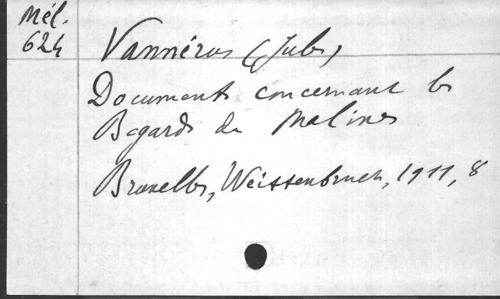 Mél.
624
Vannérus (Jules)
Documents concernant les
Bégards de Malines
Bruxelles, Weissenbruch, 1911, 8